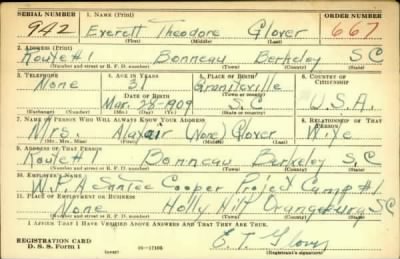 SERIAL NUMBER 1. NAME (Print) ORDER NUMBER
942 Everett Theodore Glover 667
(First) (Middle) (Last)
2. ADDRESS (Print)
Route #1 Bonneau Berkeley SC
(Number and street or R. F. D. number) (Town) (County) (State)
3. TELEPHONE 4. AGE IN YEARS 5. PLACE OF BIRTH 6. COUNTRY OF CITIZENSHIP
None 31 Graniteville
DATE OF BIRTH
Mar. 28-1909 S.C U.S.A.
(Exchange) (Number) (Mo.) (Day) (Yr.) (Town or county) (State or country)
7. NAME OF PERSON WHO WILL ALWAYS KNOW YOUR ADDRESS 8. RELATIONSHIP OF THAT PERSON
Mrs. (None) Glover Wife
(Mr., Mrs., Miss) (First) (Middle) (Last)
9. ADDRESS OF THAT PERSON
Route #1 Bonneau Berkeley S.C
(Number and street or R. F. D. number) (Town) (County) (State)
10. EMPLOYER'S NAME
W.P.A Santee Cooper Project Camp #1
11. PLACE OF EMPLOYMENT OR BUSINESS
None Holly Hill Orangeburg SC
(Number and street or R. F. D. number) (Town) (County) (State)
I AFFIRM THAT I HAVE VERIFIED ABOVE ANSWERS AND THAT THEY ARE TRUE.
REGISTRATION CARD
D. S. S. Form 1 E. T. Glover
(Registrant's signature)